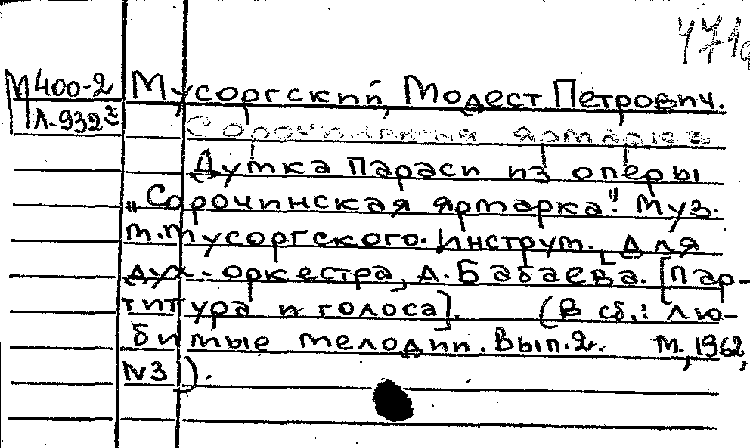 471а
М400-2
Л-932²
Мусоргский, Модест Петрович.
Сорочинская ярмарка
Думка Параси из оперы
„Сорочинская ярмарка". Муз.
М. Мусоргского. Инструм. для
дух. оркестра, А. Бабаева. [Пар-
титура и голоса]. (В сб.: Лю-
бимые мелодии. Вып. 2. М., 1962,
N3).